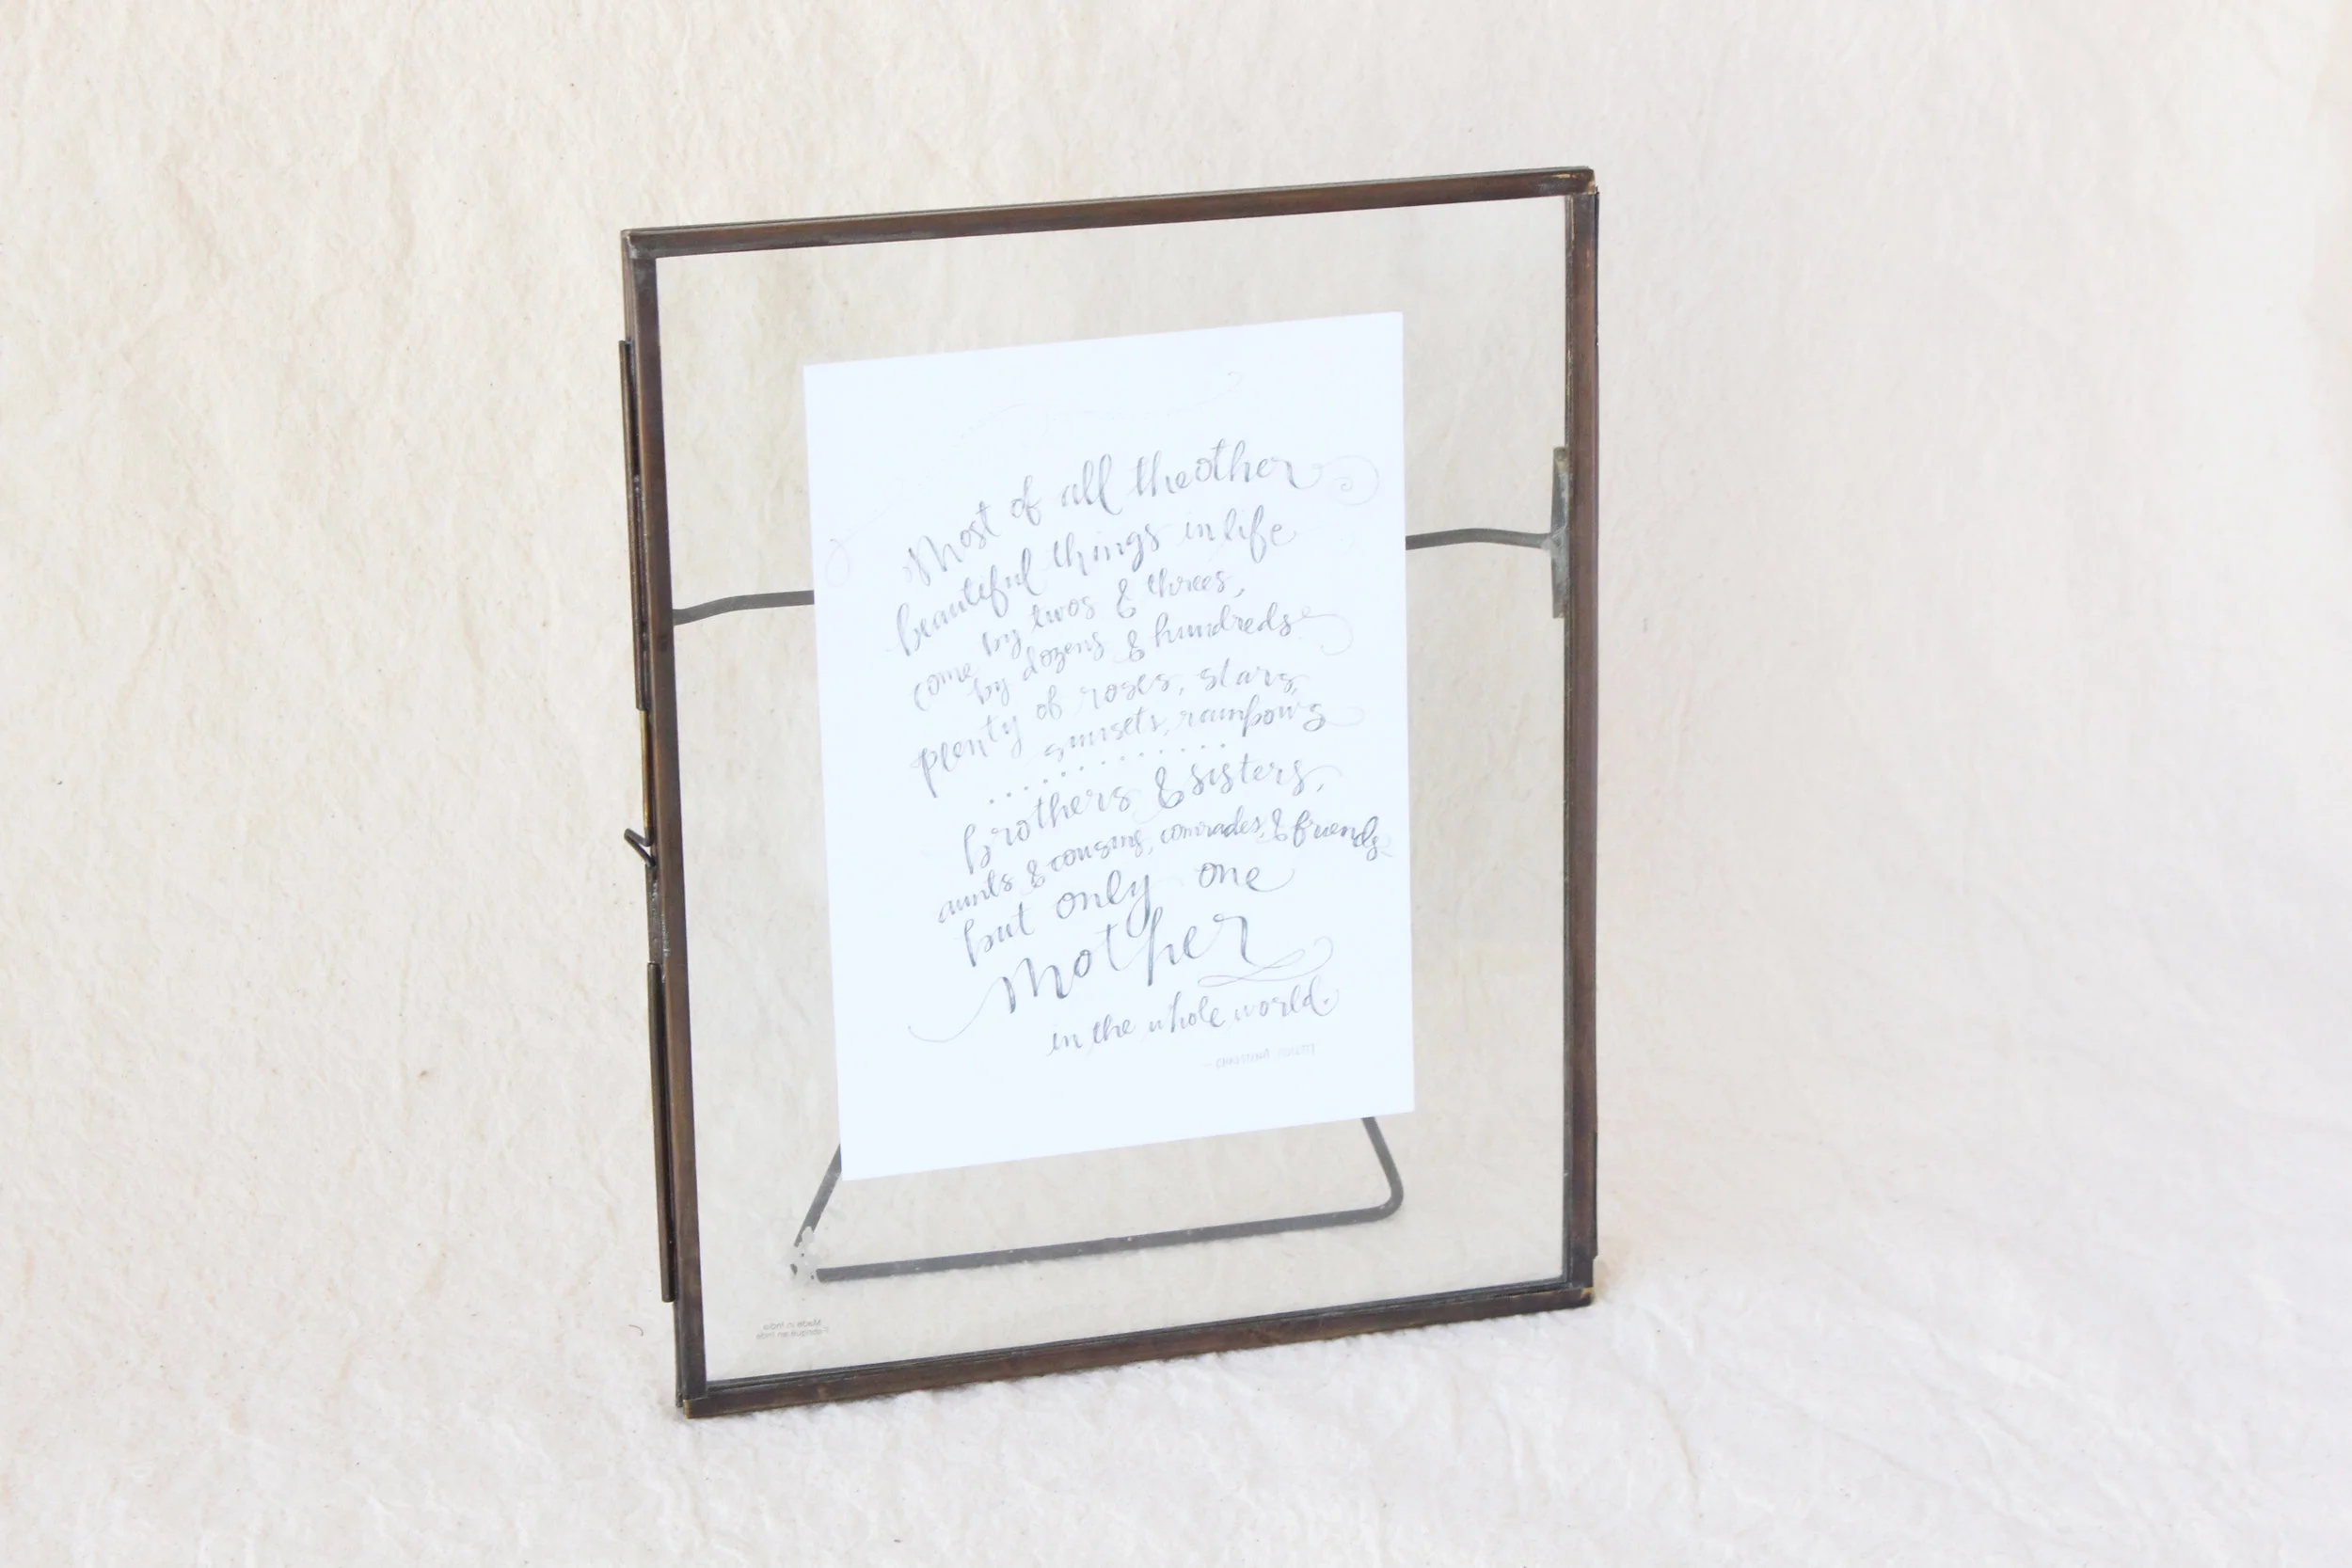 Most of all the other
beautiful things in life
come by twos & threes,
by dozens & hundreds
plenty of roses, stars,
sunsets, rainbows
brothers & sisters,
aunts & cousins, comrades, & friends
but only one
mother
in the whole world.
Made in India